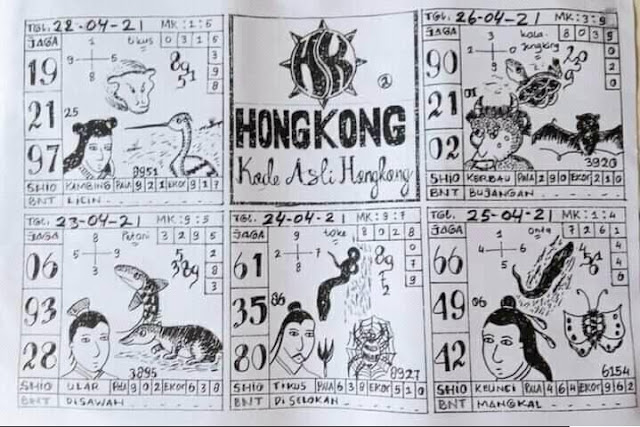 TGL. 22-04-21 MK: 1:5
JAGA 1 tikus 0 3 1 5
19 9 5 8 3 9 9 8
21 25
97 8951
SHIO KAMBING PALA 9 2 1 EKOR 9 1 7
BNT LICIN
HSK
2
HONGKONG
Kode Asli Hongkong
TGL. 26-04-21 MK: 3:9
JAGA 3 kala jengking 8 0 3 5
90 2 0 9 0 2 0
21 01
02 3920
SHIO KERBAU PALA 2 9 0 EKOR 2 1 0
BNT BUJANGAN
TGL. 23-04-21 MK: 9:5
JAGA 8 Petani 3 2 9 5
06 5 3 9
93
28 3895
SHIO ULAR PALA 9 0 2 EKOR 6 3 8
BNT DISAWAH
TGL. 24-04-21 MK: 9:7
JAGA 9 toke 8 0 2 8
61 5 7 3
35 86
80 8927
SHIO TIKUS PALA 6 3 8 EKOR 5 1 0
BNT DISELOKAN
TGL. 25-04-21 MK: 1:4
JAGA 1 onta 7 2 6 1
66 4 5 6
49 06
42 6154
SHIO KELINCI PALA 4 6 4 EKOR 9 6 2
BNT MANGKAL